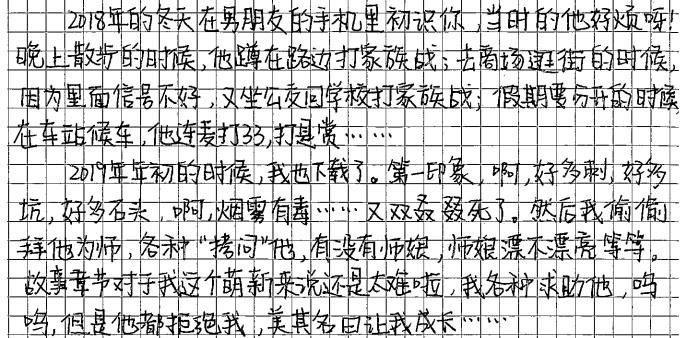 2018年的冬天在男朋友的手机里初识你,当时的他好烦呀!
晚上散步的时候,他蹲在路边打家族战;去商场逛街的时候,
因为里面信号不好,又坐公交回学校打家族战;假期要分开的时候
在车站候车,他连麦打33,打悬赏……
2019年年初的时候,我也下载了。第一印象,啊,好多刺,好多
坑,好多石头,啊,烟雾有毒……又双叒叕死了。然后我偷偷
拜他为师,各种“拷问”他,有没有师娘,师娘漂不漂亮等等。
故事章节对于我这个萌新来说还是太难啦,我各种求助他,呜
呜,但是他都拒绝我,美其名曰让我成长……